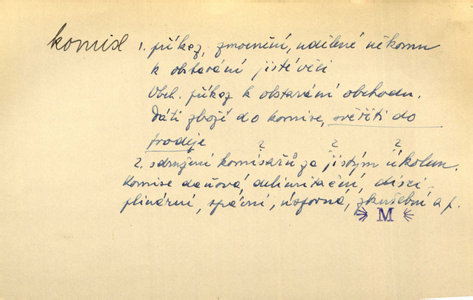 komise 1. příkaz, zmocnění, udělené někomu
k obstarání jisté věci
Obch. příkaz k obstarání obchodu.
Dáti zboží do komise, svěřiti do
prodeje
2. sdružení komisařů za jistým úkolem.
Komise daňová, delimitační, disci-
plinární, správní, úsporná, zkušební a p.
M